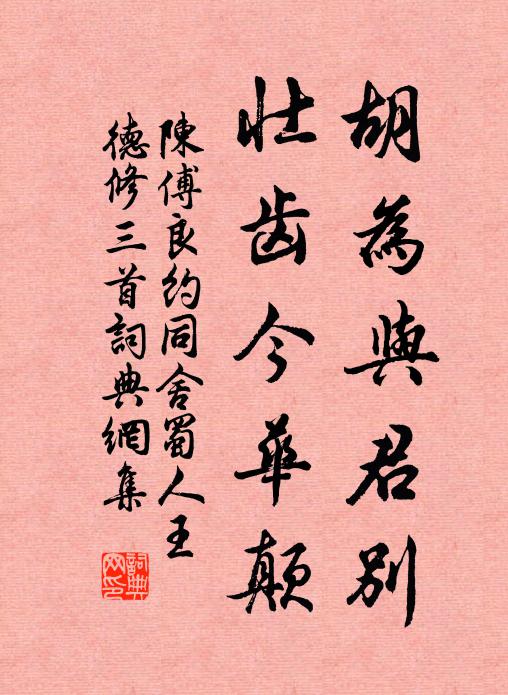 胡為與君別
壯齒今華顛
陳傅良約同舍蜀人王
德修三首詞典網集
詞典
网印